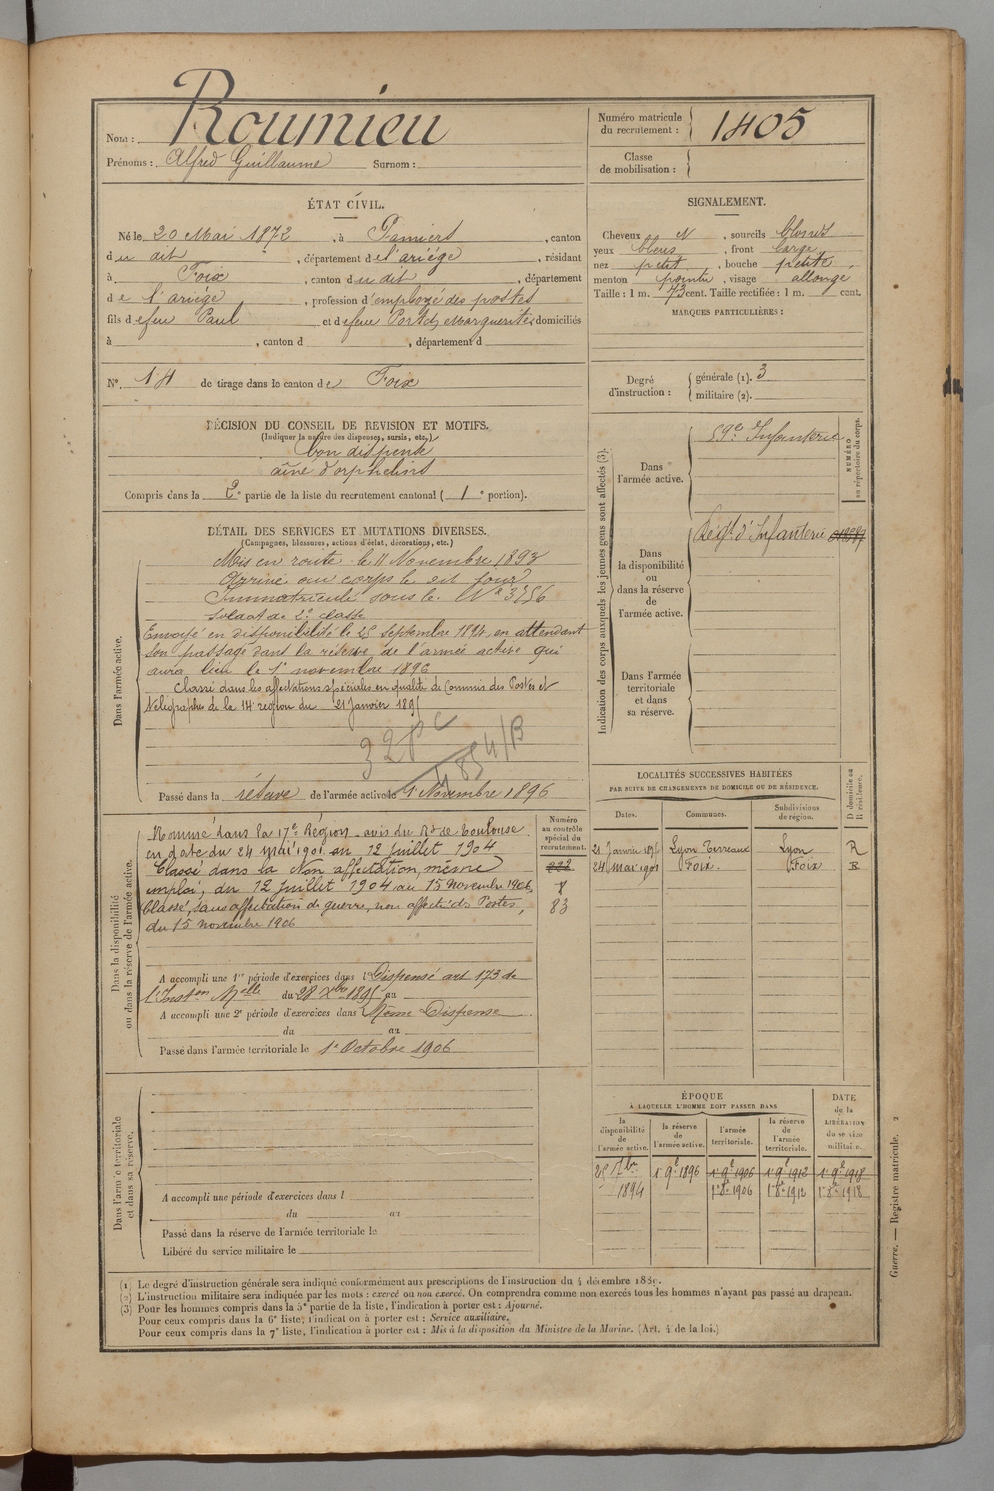 Nom : Roumieu
Prénoms : Alfred Guillaume Surnom :
Numéro matricule du recrutement : 1405
Classe de mobilisation :
ÉTAT CIVIL.
Né le 20 Mai 1872, à Pamiers, canton
du dit, département de l'ariége, résidant
à Foix, canton du dit, département
de l'ariége, profession d'employé des postes
fils de feu Paul et de feu Marguerite, domiciliés
à , canton d , département d
N° 14 de tirage dans le canton de Foix
DÉCISION DU CONSEIL DE REVISION ET MOTIFS.
(Indiquer la nature des dispenses, sursis, etc.)
bon dispensé
aîné d'orphelins
Compris dans la 2e partie de la liste du recrutement cantonal (1e portion).
SIGNALEMENT.
Cheveux N, sourcils blonds
yeux bleus, front large
nez petit, bouche petite
menton pointu, visage allongé
Taille : 1 m. 73 cent. Taille rectifiée : 1 m. cent.
MARQUES PARTICULIÈRES :
Degré d'instruction :
générale (1). 3
militaire (2).
DÉTAIL DES SERVICES ET MUTATIONS DIVERSES.
(Campagnes, blessures, actions d'éclat, décorations, etc.)
Dans l'armée active.
Mis en route le 11 Novembre 1893
Arrivé au corps le dit jour
Immatriculé sous le N° 3256
soldat de 2e classe
Envoyé en disponibilité le 25 Septembre 1894, en attendant
son passage dans la réserve de l'armée active qui
aura lieu le 1er novembre 1896
Classé dans les affectations spéciales en qualité de Commis des Postes et
Télégraphes de la 14e région du 21 Janvier 1895
Passé dans la réserve de l'armée active le 1 Novembre 1896
Indication des corps auxquels les jeunes gens sont affectés (3).
Dans l'armée active.
59e Infanterie
NUMÉRO au répertoire du corps.
Dans la disponibilité ou dans la réserve de l'armée active.
Régt d'Infanterie
Dans l'armée territoriale et dans sa réserve.
LOCALITÉS SUCCESSIVES HABITÉES
PAR SUITE DE CHANGEMENTS DE DOMICILE OU DE RÉSIDENCE.
Dates. Communes. Subdivisions de région. D domicile ou R résidence.
21 Janvier Lyon Terreaux Lyon R
24 Mai 1901 Foix. Foix R
Dans la disponibilité ou dans la réserve de l'armée active.
Numéro au contrôle spécial du recrutement.
Nommé dans la 17e Région avis du de Toulouse
en date du 24 mai 1901 au 12 Juillet 1904
Classé dans la Non affectation, même
emploi, du 12 Juillet 1904 au 15 novembre 1906,
Classé, sans affectation de guerre, non affecté des Postes,
du 15 novembre 1906
83
A accompli une 1re période d'exercices dans l Dispensé art 173 de
l'Inston Melle du 28 Xbre 1895 au
A accompli une 2e période d'exercices dans Même Dispense
du au
Passé dans l'armée territoriale le 1er Octobre 1906
Dans l'armée territoriale et dans sa réserve.
A accompli une période d'exercices dans l
du au
Passé dans la réserve de l'armée territoriale le
Libéré du service militaire le
ÉPOQUE
À LAQUELLE L'HOMME DOIT PASSER DANS
la disponibilité de l'armée active. la réserve de l'armée active. l'armée territoriale. la réserve de l'armée territoriale.
DATE de la LIBÉRATION du service militaire.
25 7bre 1894 1er 9bre 1896 1er 9bre 1906 1er 9bre 1912 1er 9bre 1918
1er 8bre 1906 1er 8bre 1912 1er 8bre 1918
(1) Le degré d'instruction générale sera indiqué conformément aux prescriptions de l'instruction du 4 décembre
(2) L'instruction militaire sera indiquée par les mots : exercé ou non exercé. On comprendra comme non exercés tous les hommes n'ayant pas passé au drapeau.
(3) Pour les hommes compris dans la 5e partie de la liste, l'indication à porter est : Ajourné.
Pour ceux compris dans la 6e liste, l'indication à porter est : Service auxiliaire.
Pour ceux compris dans la 7e liste, l'indication à porter est : Mis à la disposition du Ministre de la Marine. (Art. 4 de la loi.)
Guerre. — Registre matricule. 2